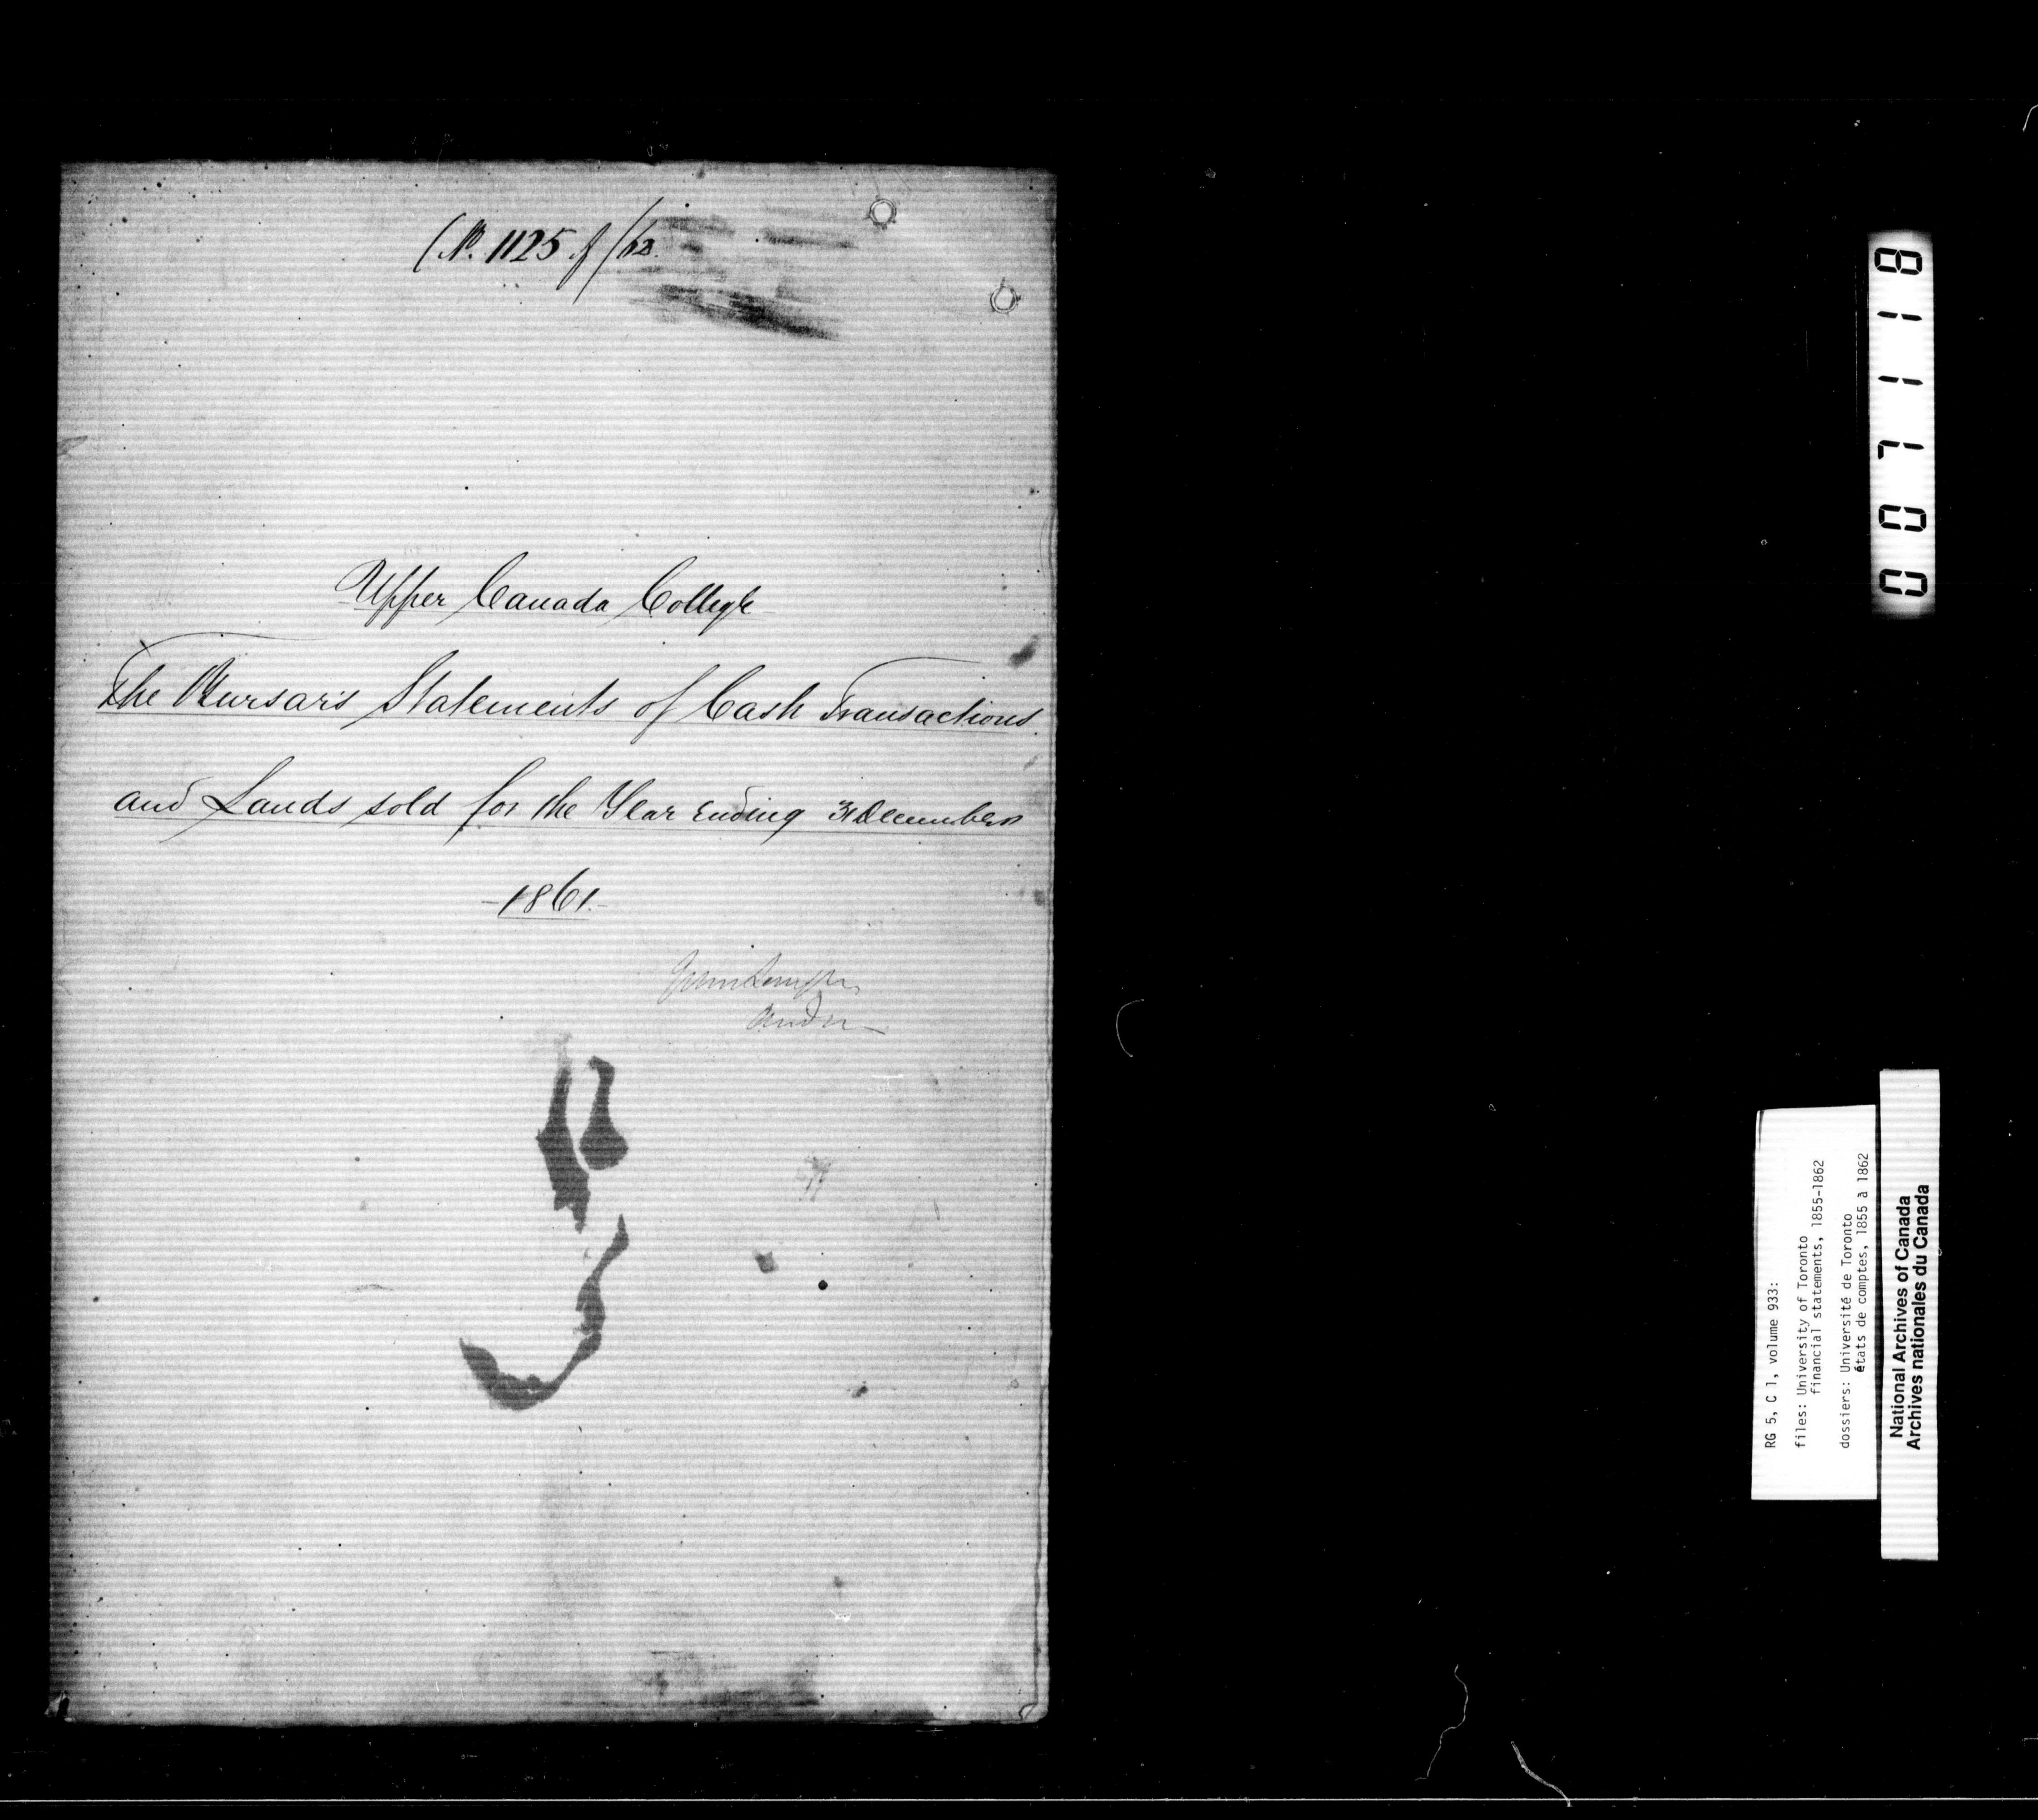 (No. 1125 of /62.
Upper Canada College
The Bursar's Statements of Cash Transactions.
and Lands sold for the Year Ending 31 December
-1861.-
007118
RG 5, C 1, volume 933:
files: University of Toronto
financial statements, 1855-1862
dossiers: Université de Toronto
états de comptes, 1855 à 1862
National Archives of Canada
Archives nationales du Canada